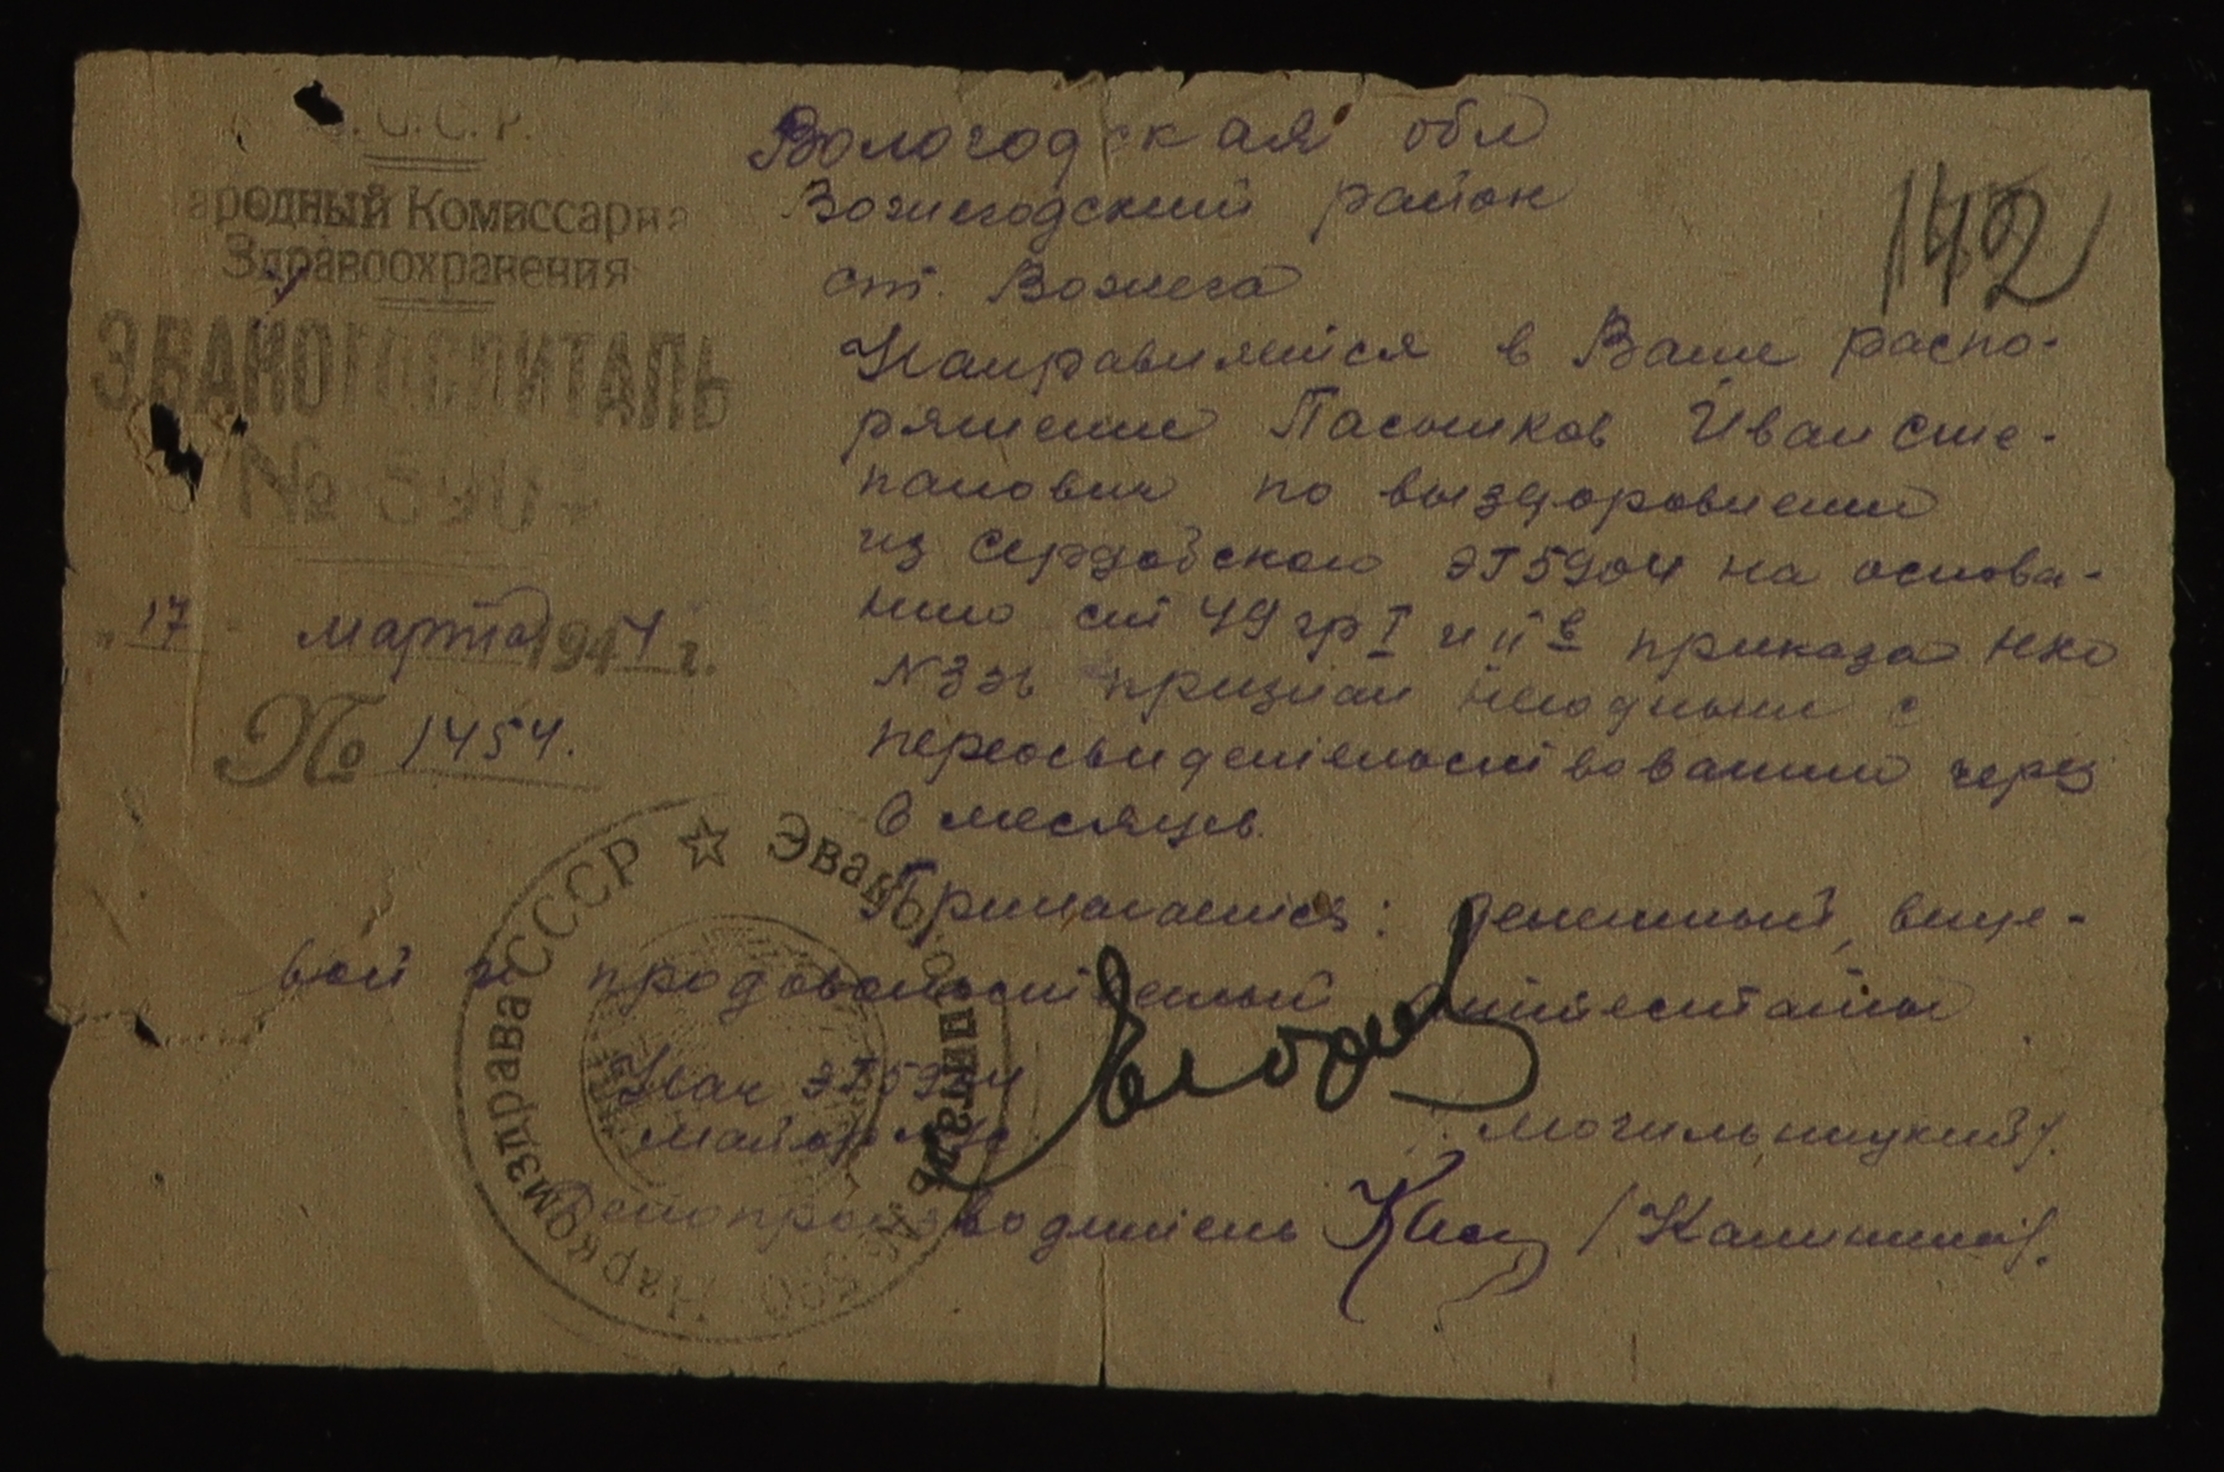 С.С.С.Р.
Народный Комиссариа
Здравоохранения
ЭВАКОГОСПИТАЛЬ
№ 5904
"17" марта 1944 г.
№ 1454.
142
Вологодская обл
Вожегодский район
ст. Вожега
Направляется в Ваше распо-
ряжение Пасынков Иван Сте-
панович по выздоровлении
из Сердобского ЭГ5904 на основа-
нию ст 49 гр I и II в приказа НКО
N 336 признан негодным с
переосвидетельствованием через
6 месяцев.
Прилагаются: денежный, веще-
вой и продовольственный аттестаты
Нач ЭГ5904
майор м/с /Могильницкий/.
Делопроизводитель /Калинина/.
Наркомздрава СССР ☆ Эвакогоспиталь № 5904